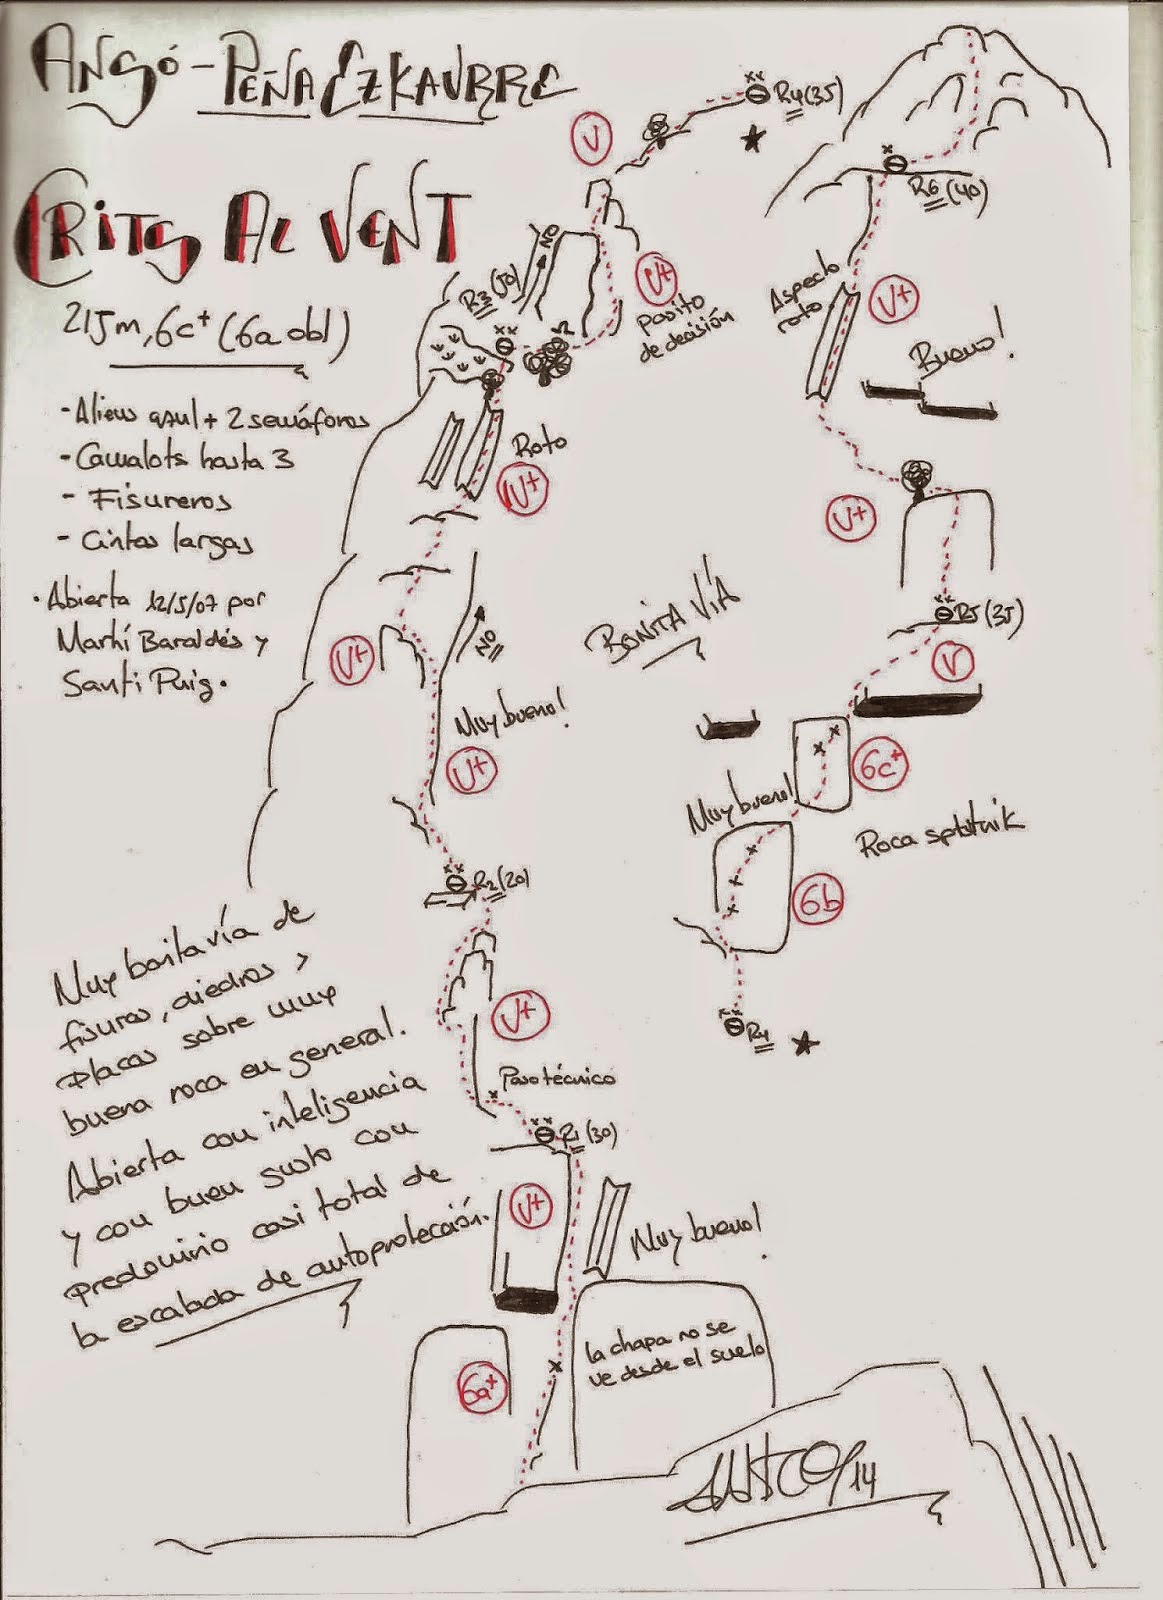 ANSÓ - PEÑA EZKAURRE
CRITS AL VENT
215m, 6c+ (6a obl)
- Aliens azul + 2 semáforos
- Camalots hasta 3
- Fisureros
- Cintas largas
· Abierta 12/5/07 por
Marhí Baraldés y
Santi Puig.
Muy bonita vía de
fisuras, diedros y
placas sobre muy
buena roca en general.
Abierta con inteligencia
y con buen gusto con
predominio casi total de
la escalada de autoprotección.
R4 (35)
V
V+
pasito
de decisión
NO
R3 (50)
Roto
IV+
V+
NO
Muy bueno!
V+
R2 (20)
V+
Paso técnico
R1 (30)
V+
Muy bueno!
La chapa no se
ve desde el suelo
6a+
R6 (40)
Aspecto
roto
V+
Bueno!
V+
R5 (35)
V
BONITA VÍA
6c+
Muy bueno!
Roca sputnik
6b
R4
14